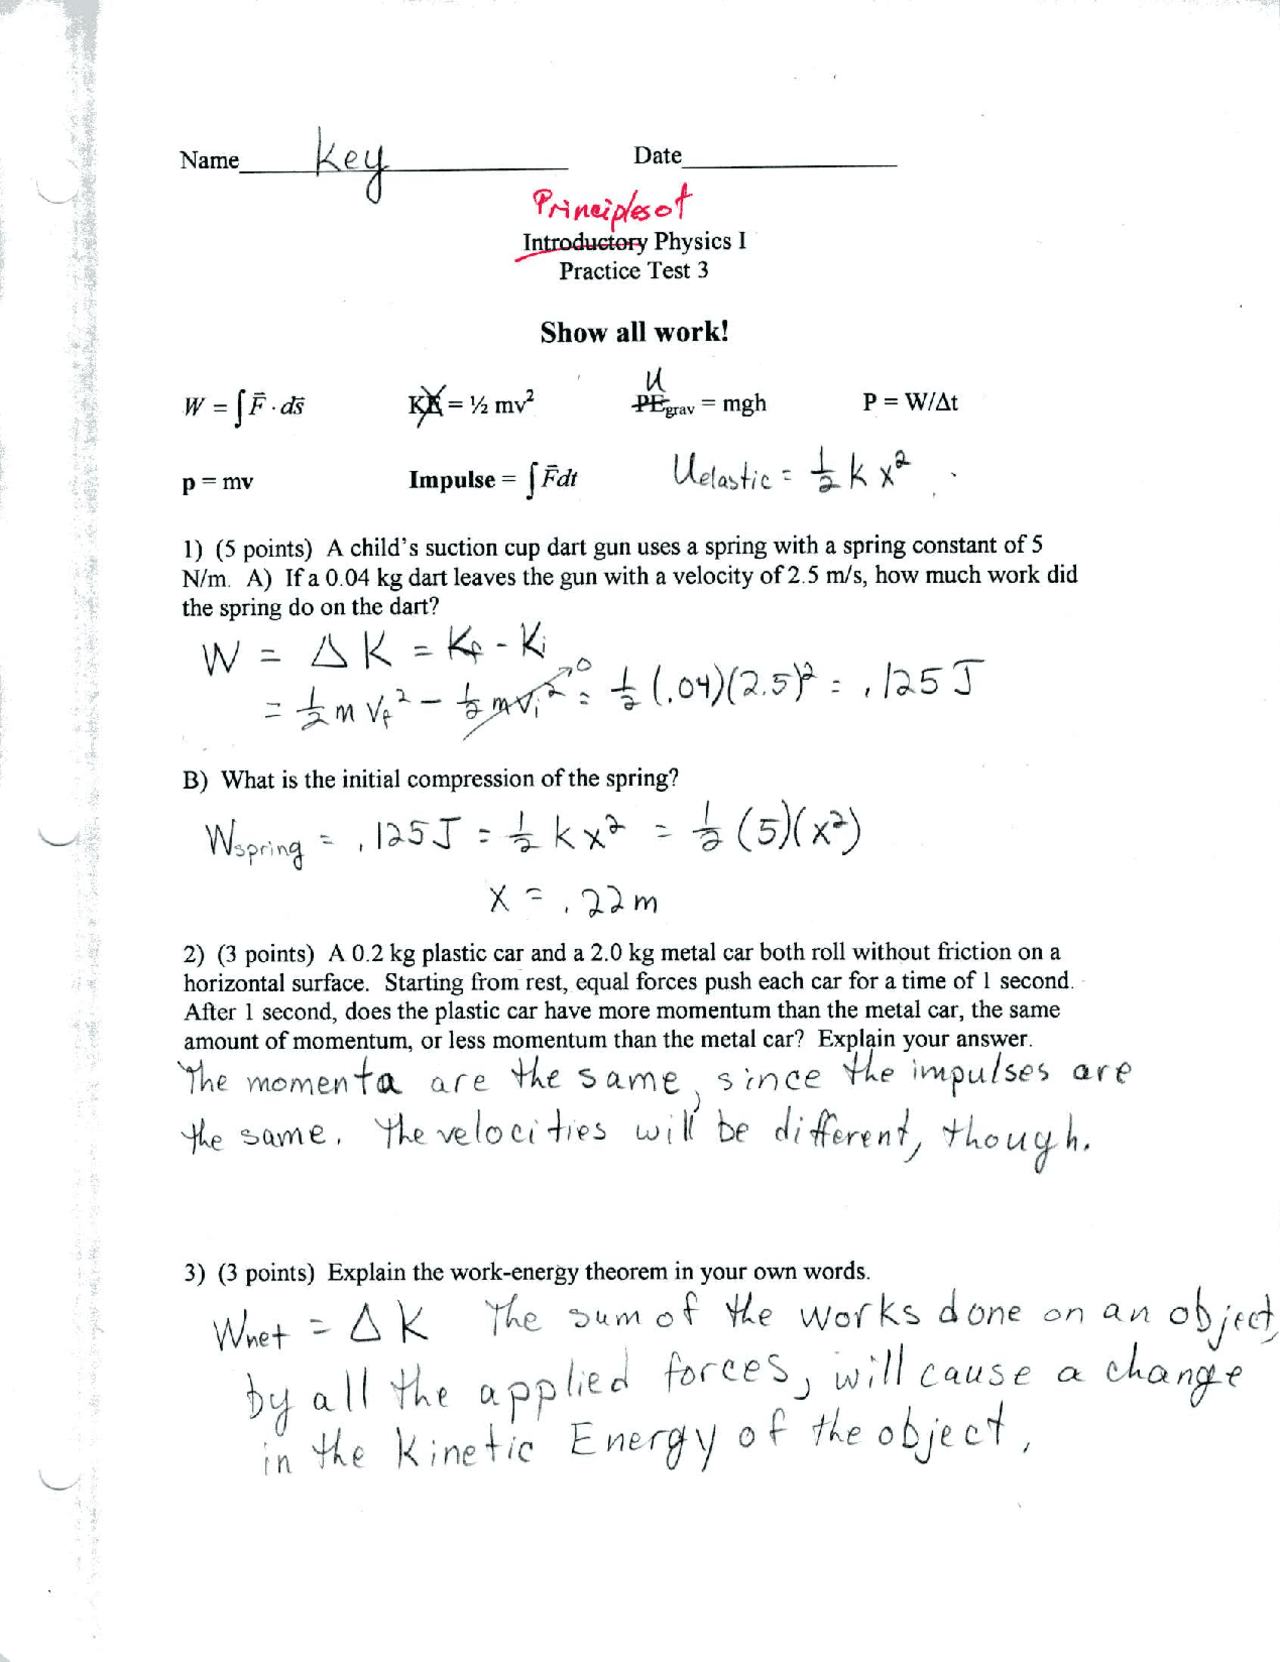 Name key Date
Principles of
Introductory Physics I
Practice Test 3
Show all work!
W = ∫F̄ · ds̄ KE = ½ mv² U PEgrav = mgh P = W/Δt
p = mv Impulse = ∫F̄dt Uelastic = ½ k x²
1) (5 points) A child's suction cup dart gun uses a spring with a spring constant of 5
N/m. A) If a 0.04 kg dart leaves the gun with a velocity of 2.5 m/s, how much work did
the spring do on the dart?
W = Δ K = Kf - Ki
= ½ m Vf² - ½ mVi² → 0 = ½ (.04)(2.5)² = .125 J
B) What is the initial compression of the spring?
Wspring = .125 J = ½ k x² = ½ (5)(x²)
x = .22 m
2) (3 points) A 0.2 kg plastic car and a 2.0 kg metal car both roll without friction on a
horizontal surface. Starting from rest, equal forces push each car for a time of 1 second.
After 1 second, does the plastic car have more momentum than the metal car, the same
amount of momentum, or less momentum than the metal car? Explain your answer.
The momenta are the same, since the impulses are
the same. The velocities will be different, though.
3) (3 points) Explain the work-energy theorem in your own words.
Wnet = Δ K The sum of the works done on an object,
by all the applied forces, will cause a change
in the Kinetic Energy of the object.